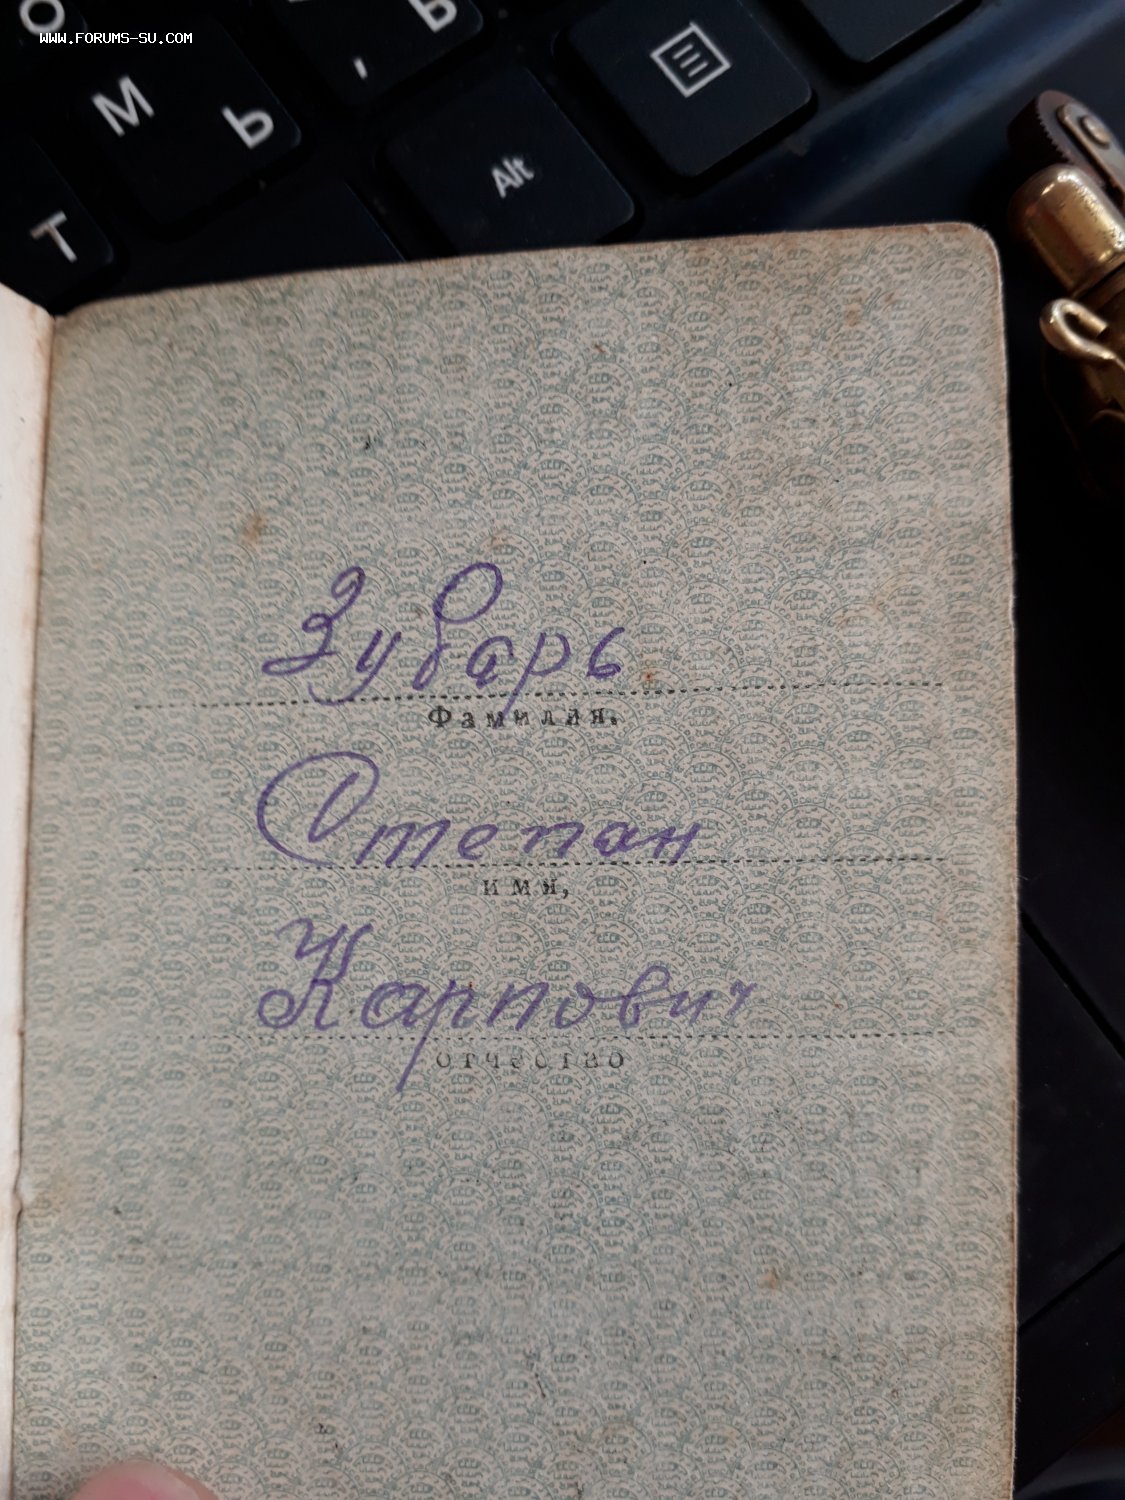 WWW.FORUMS-SU.COM
Ь
М Ь
,
Alt
Т
Зубарь
Фамилия.
Степан
имя,
Карпович
отчество